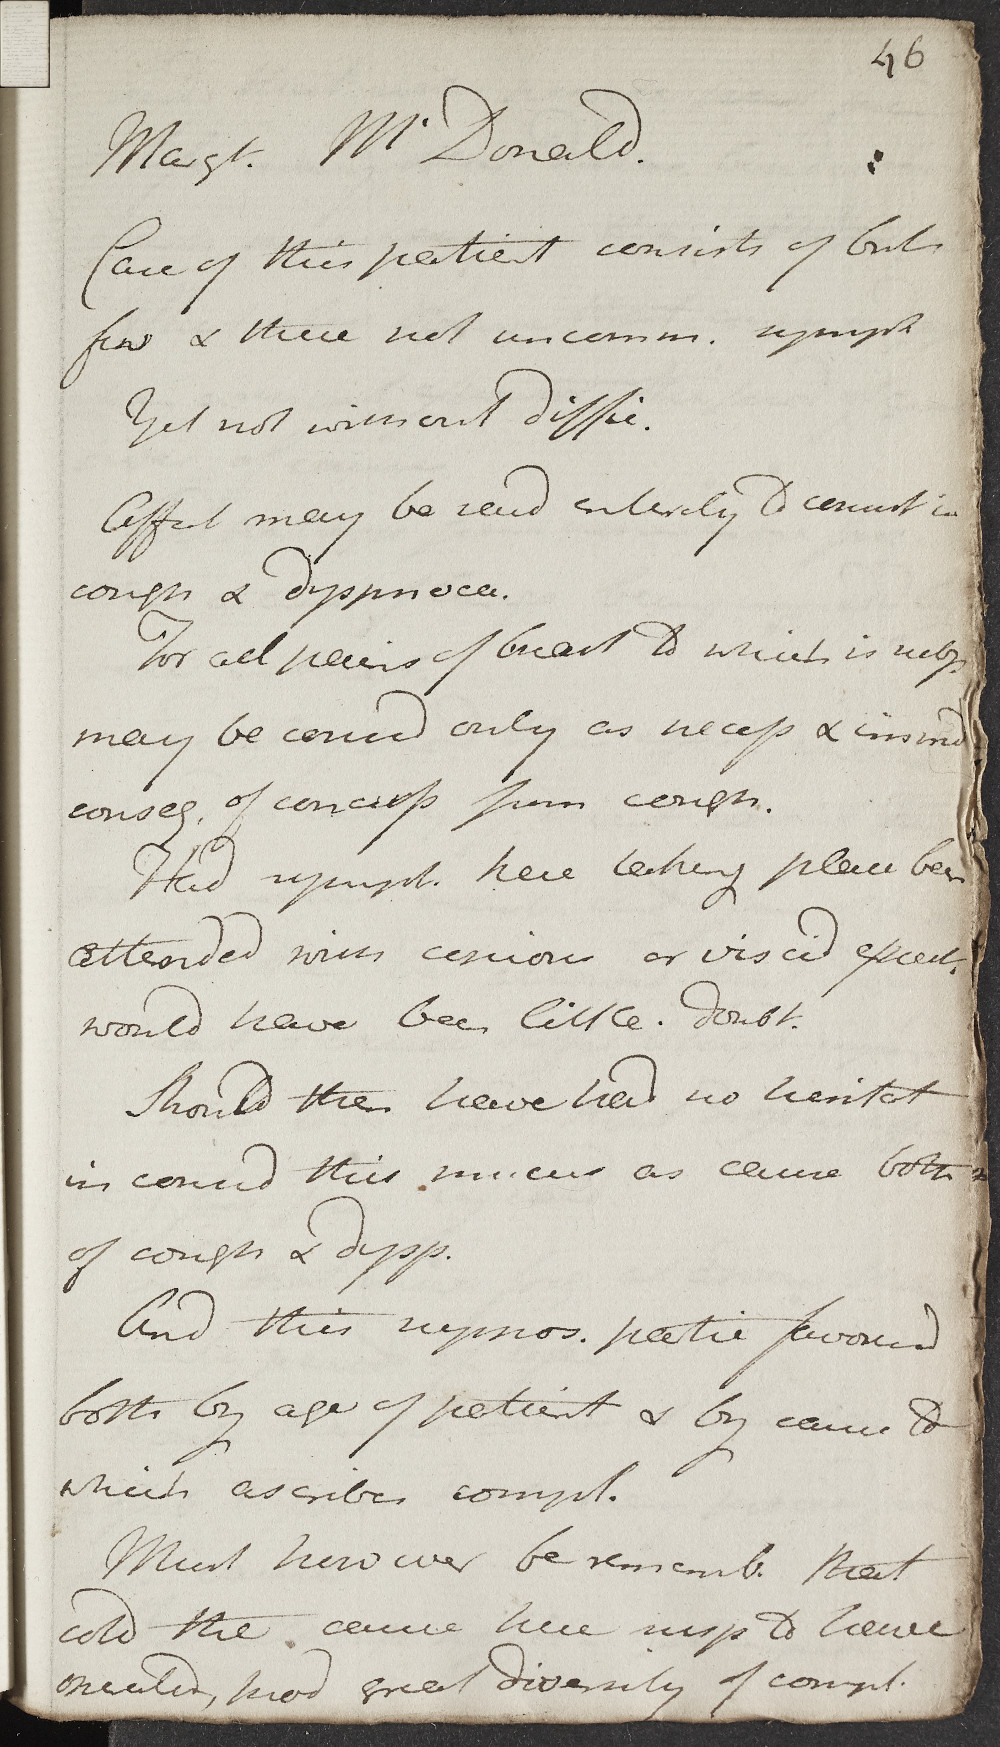 46
Margt. Mc Donald.
Case of this patient consists of but
few & these not uncomm. sympt
Yet not without diffic.
Affect may be said entirely to consist in
cough & dyspnoea.
For all pains of breast to which is subj.
may be consid only as necess &
conseq. of concuss from cough.
Had sympt. here taking place been
attended with copious or viscid expect.
would have been little. doubt.
Should then have had no hesitat
in consid this mucus as cause both
of cough & dysp.
And this suppos. patic favoured
both by age of patient & by cause to
which ascribes compl.
Must however be rememb. that
cold the cause here susp to have
operated, prod great diversity of compl.